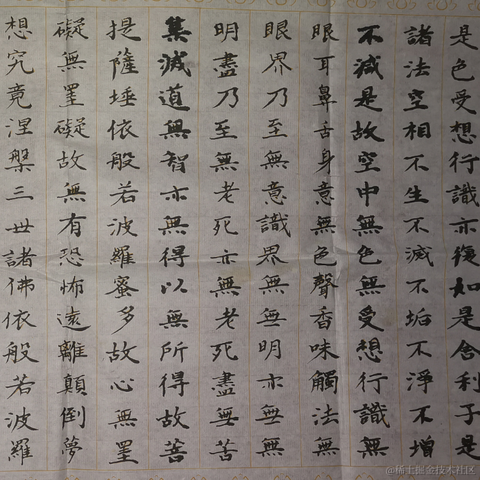 是色受想行識亦復如是舍利子是
諸法空相不生不滅不垢不淨不增
不減是故空中無色無受想行識無
眼耳鼻舌身意無色聲香味觸法無
眼界乃至無意識界無無明亦無無
明盡乃至無老死亦無老死盡無苦
集滅道無智亦無得以無所得故菩
提薩埵依般若波羅蜜多故心無罣
礙無罣礙故無有恐怖遠離顛倒夢
想究竟涅槃三世諸佛依般若波羅
@稀土掘金技术社区